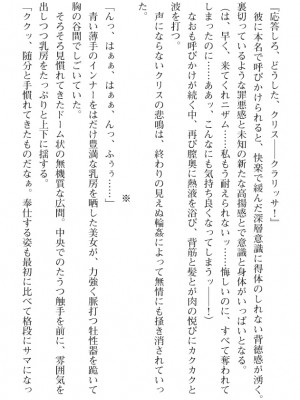 『応答しろ、どうした、クリス――クラリッサ！』
　彼に本名で呼びかけられると、快楽で緩んだ深層意識に得体のしれない背徳感が湧く。
裏切っているような罪悪感と未知の新たな高揚感とで意識と身体がいっぱいとなる。
（は、早く、来てくれニザム……私もう耐えられないッ……悔しいのに、すべて奪われて
しまったのに……あぁッ、こんなにも気持ち良くなってしまうッ――！）
　なおも呼びかけが続く中、再び膣奥に熱液を浴び、背筋と髪とが肉の悦びにカクカクと
波を打つ。
　声にならないクリスの悲鳴は、終わりの見えぬ輪姦によって無情にも掻き消されていっ
た。
※
「んっ、はぁぁ、はぁぁ、んっ、ふぅぅ……」
　青い薄手のインナーをはだけ豊満な乳房を晒した美女が、力強く脈打つ牡性器を跪いて
胸の谷間でしごいていた。
　そろそろ見慣れてきたドーム状の無機質な広間。中央でのたうつ触手を前に、雰囲気を
出しつつ乳房をたっぷりと上下に揺する。
「ククッ、随分と手慣れてきたものだなぁ。奉仕する姿も最初に比べて格段にサマになっ